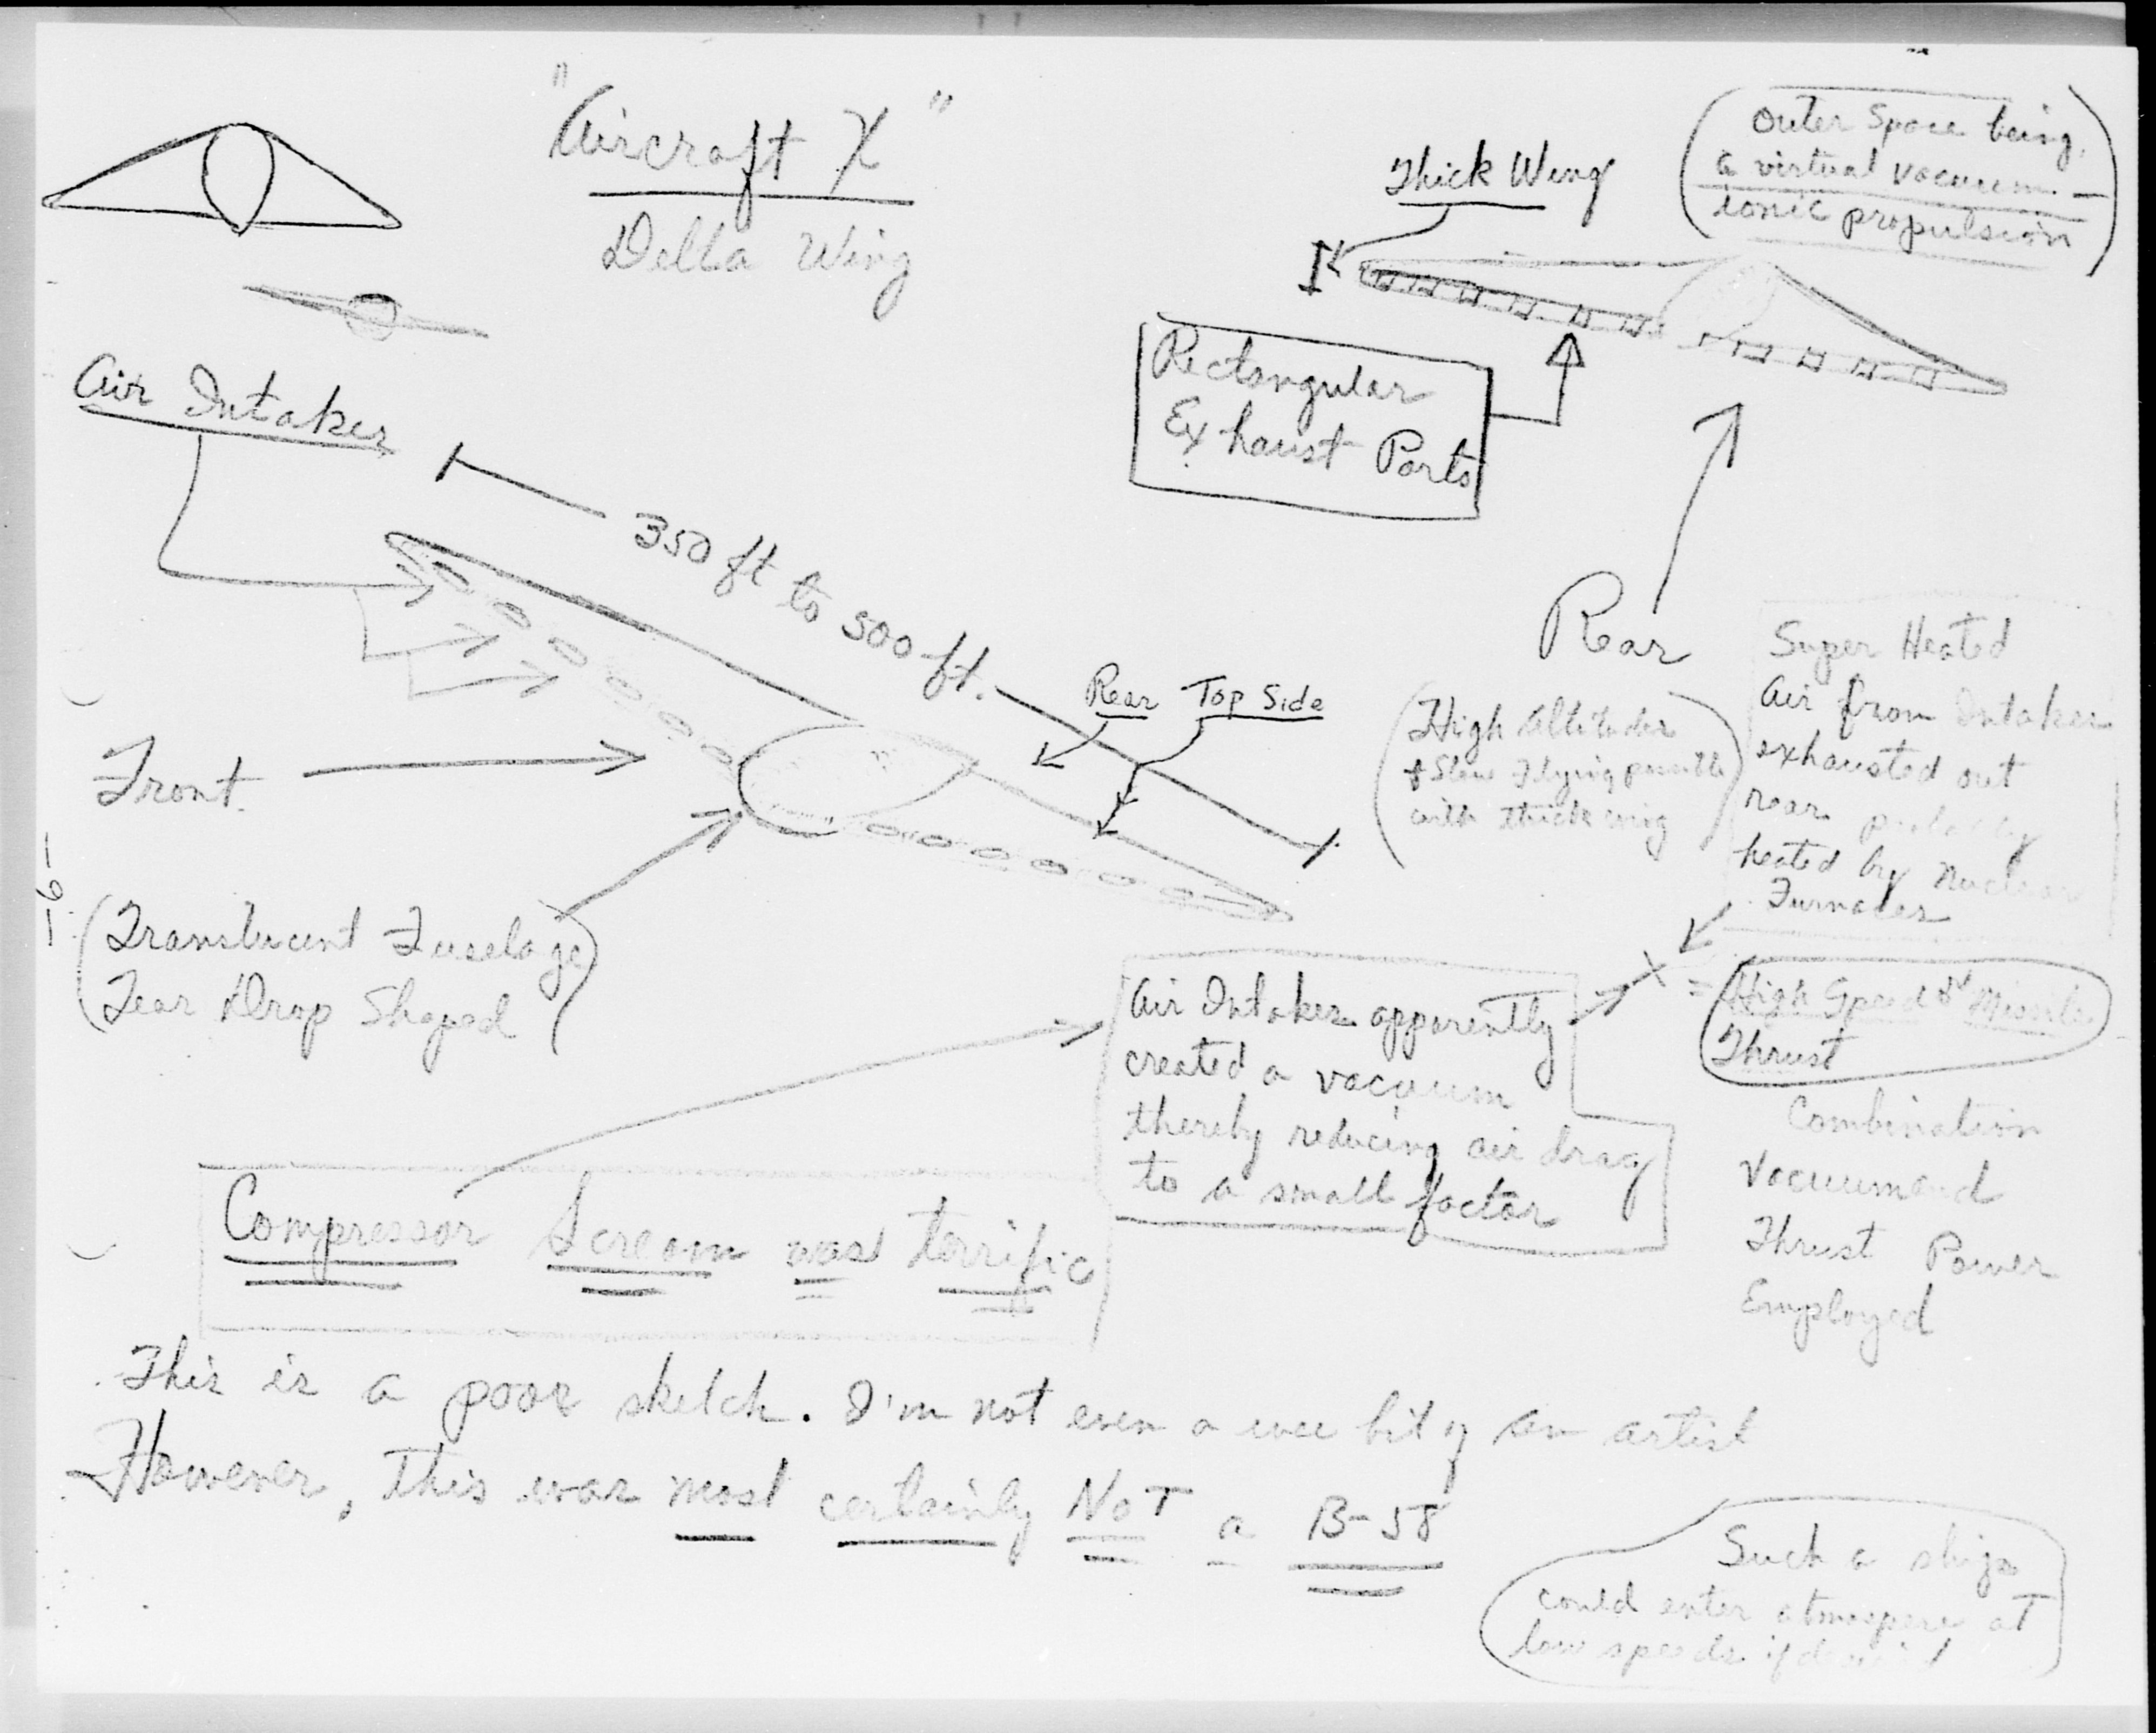 "Aircraft X"
Delta Wing
Thick Wing
(Outer Space being
a virtual vacuum -
ionic propulsion)
Rectangular
Exhaust Ports
Air Intakes
350 ft to 500 ft.
Rear Top Side
Rear
Front
(High Altitudes
& Slow Flying possible
with thick wing)
Super Heated
air from Intakes
exhausted out
rear probably
heated by nuclear
Furnaces
-6-
(Translucent Fuselage
Tear Drop Shaped)
Air Intakes apparently
created a vacuum
thereby reducing air drag
to a small factor
X
= High Speed & Missile
Thrust
Combination
Vacuum and
Thrust Power
Employed
Compressor Scream was terrific
This is a poor sketch. I'm not even a wee bit of an artist
However, this was most certainly NOT a B-58
Such a ship
could enter atmospere at
low speeds if